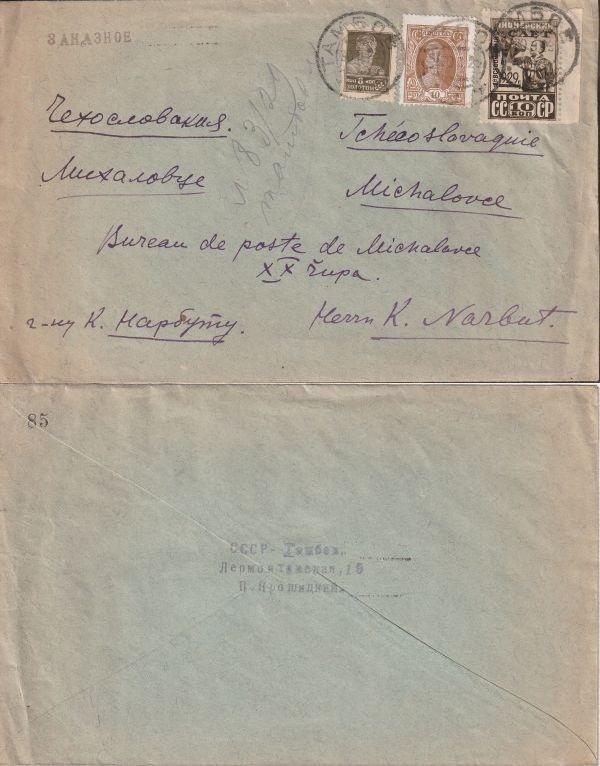 ЗАКАЗНОЕ
ТАМБОВ
8 КОП.
ЗОЛОТОМ
40
ПИОНЕРСКИЙ
СЛЕТ
1929
ПОЧТА
СССР
10
КОП
Чехословакия. Tchécoslovaquie
Михаловце Michalovce
Bureau de poste de Michalovce
XX župa.
г-ну К. Нарбуту. Herrn K. Narbut.
N 83/29
85
СССР- Тамбов.
Лермонтовская, 15